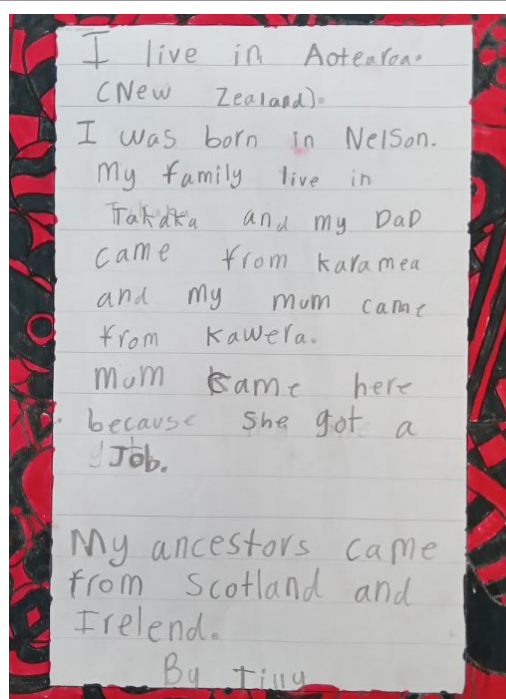 I live in Aotearoa.
(New Zealand).
I was born in Nelson.
My family live in
Takaka and my DaD
came from karamea
and my mum came
from kawera.
mum came here
because she got a
Job.
My ancestors came
from Scotland and
Irelend.
By Tilly